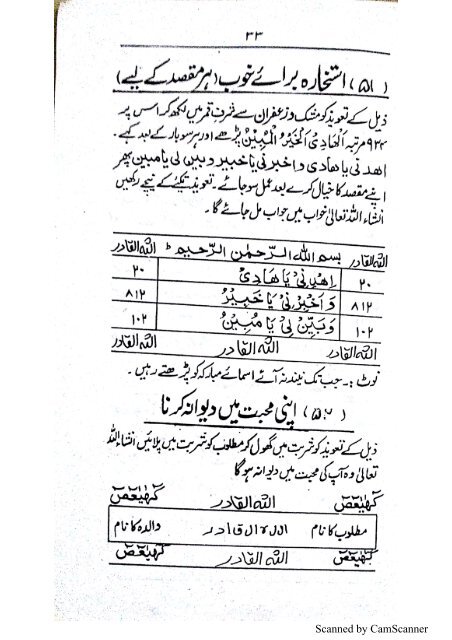 ۳۳
(۵۱) استخارہ برائے خوب (ہر مقصد کے لیے)
ذیل کے تعویذ کو مشک و زعفران سے شرف قمر میں لکھ کر اس پر
۹۳۴ مرتبہ اَلْهَادِیُ الْخَبِیْرُ الْمُبِیْنُ پڑھے اور ہر سو بار کے بعد کہے۔
اهدنی یا هادی و اخبرنی یا خبیر و بین لی یا مبین پھر
اپنے مقصد کا خیال کرے بعد عمل سو جائے۔ تعویذ تکئے کے نیچے رکھیں
انشاء اللہ تعالیٰ خواب میں جواب مل جائے گا۔
الله القادر بسم الله الرحمن الرحیم ط الله القادر
۲۰ اِهْدِنِیْ یَا هَادِیُ ۲۰
۸۱۲ وَ اَخْبِرْنِیْ یَا خَبِیْرُ ۸۱۲
۱۰۲ وَ بَیِّنْ لِیْ یَا مُبِیْنُ ۱۰۲
الله القادر الله القادر الله القادر
نوٹ:۔ جب تک نیند نہ آئے اسمائے مبارکہ کو پڑھتے رہیں۔
(۵۲) اپنی محبت میں دیوانہ کرنا
ذیل کے تعویذ کو شربت میں گھول کو مطلوب کو شربت میں پلائیں انشاءاللہ
تعالیٰ وہ آپ کی محبت میں دیوانہ ہوگا
كهيعص الله القادر كهيعص
مطلوب کا نام ا ل ل ہ ا ل ق ا د ر والدہ کا نام
كهيعص الله القادر كهيعص
Scanned by CamScanner